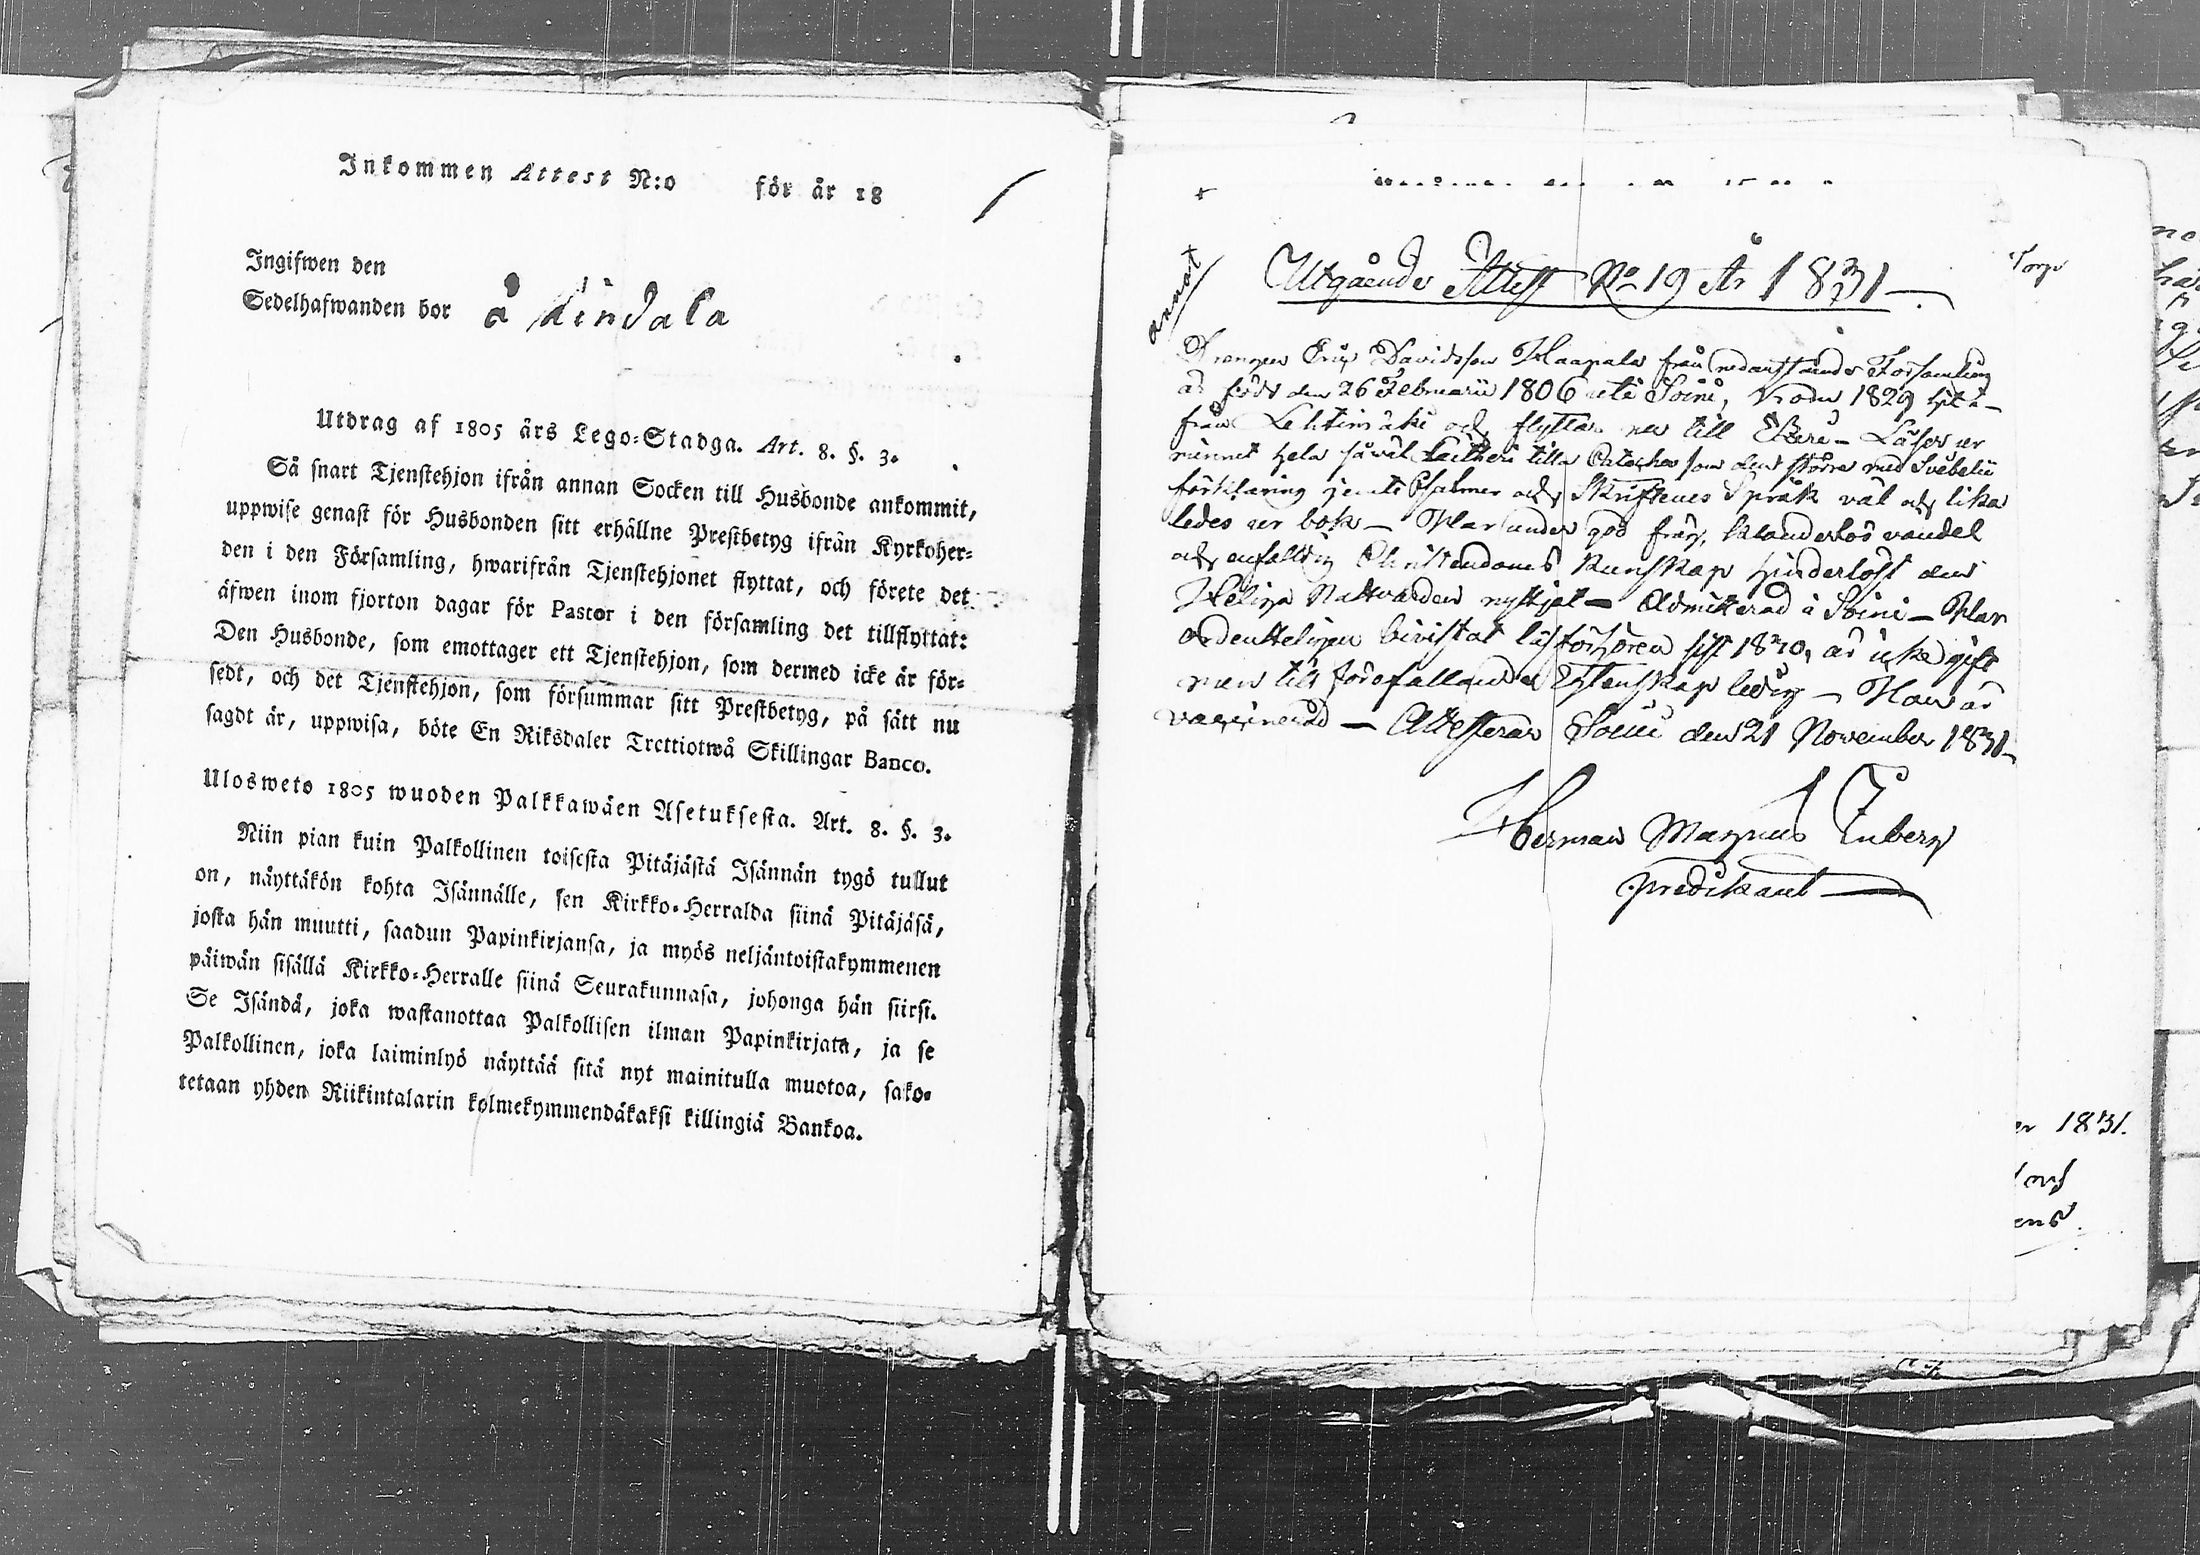 Inkommen Attest N:o för år 18
Ingifwen den
Sedelhafwanden bor å Rindala
Utdrag af 1805 års Lego-Stadga. Art. 8. §. 3.
Så snart Tjenstehjon ifrån annan Socken till Husbonde ankommit,
uppwise genast för Husbonden sitt erhållne Prestbetyg ifrån Kyrkoher-
den i den Församling, hwarifrån Tjenstehjonet flyttat, och förete det
äfwen inom fjorton dagar för Pastor i den församling det tillflyttat:
Den Husbonde, som emottager ett Tjenstehjon, som dermed icke är för-
sedt, och det Tjenstehjon, som försummar sitt Prestbetyg, på sätt nu
sagdt är, uppwisa, böte En Riksdaler Trettiotwå Skillingar Banco.
Ulosweto 1805 wuoden Palkkawäen Asetuksesta. Art. 8. §. 3.
Niin pian kuin Palkollinen toisesta Pitäjästä Isännän tygö tullut
on, näyttäkön kohta Isännälle, sen Kirkko-Herralda siinä Pitäjäsä,
josta hän muutti, saadun Papinkirjansa, ja myös neljäntoistakymmenen
päiwän sisällä Kirkko-Herralle siinä Seurakunnasa, johonga hän siirsi.
Se Isändä, joka wastanottaa Palkollisen ilman Papinkirjata, ja se
Palkollinen, joka laiminlyö näyttää sitä nyt mainitulla muotoa, sako-
tetaan yhden Riikintalarin kolmekymmendäkaksi killingiä Bankoa.
annot
Utgående Attest No 19 År 1831
Drengen Eric Davidsson Haapala från nedanstående Församling
är född den 26 Februarii 1806 uti Soini, kom 1829 hit
från Lehtimäki och flyttar nu till Etseri - Läser ur
minnet hela såväl Lutheri lilla Cateches som den större med Svebelii
förklaring jemte Psalmer och Skriftenes Språk väl och lika
ledes ur bok - Har under god fräg, klanderlös vandel
och enfaldig Christendoms kunskap hinderlöst den
Heliga Nattvarden nyttjat - Admitterad i Soini - Har
ordenteligen bivistat läsförhören sist 1830, är icke gift
men till förefallande Ectenskap ledig - Han är
vaccinerad - Attesterar Soini den 21 November 1831
Herman Magnus Inberg
predikant
Torp
er 1831.